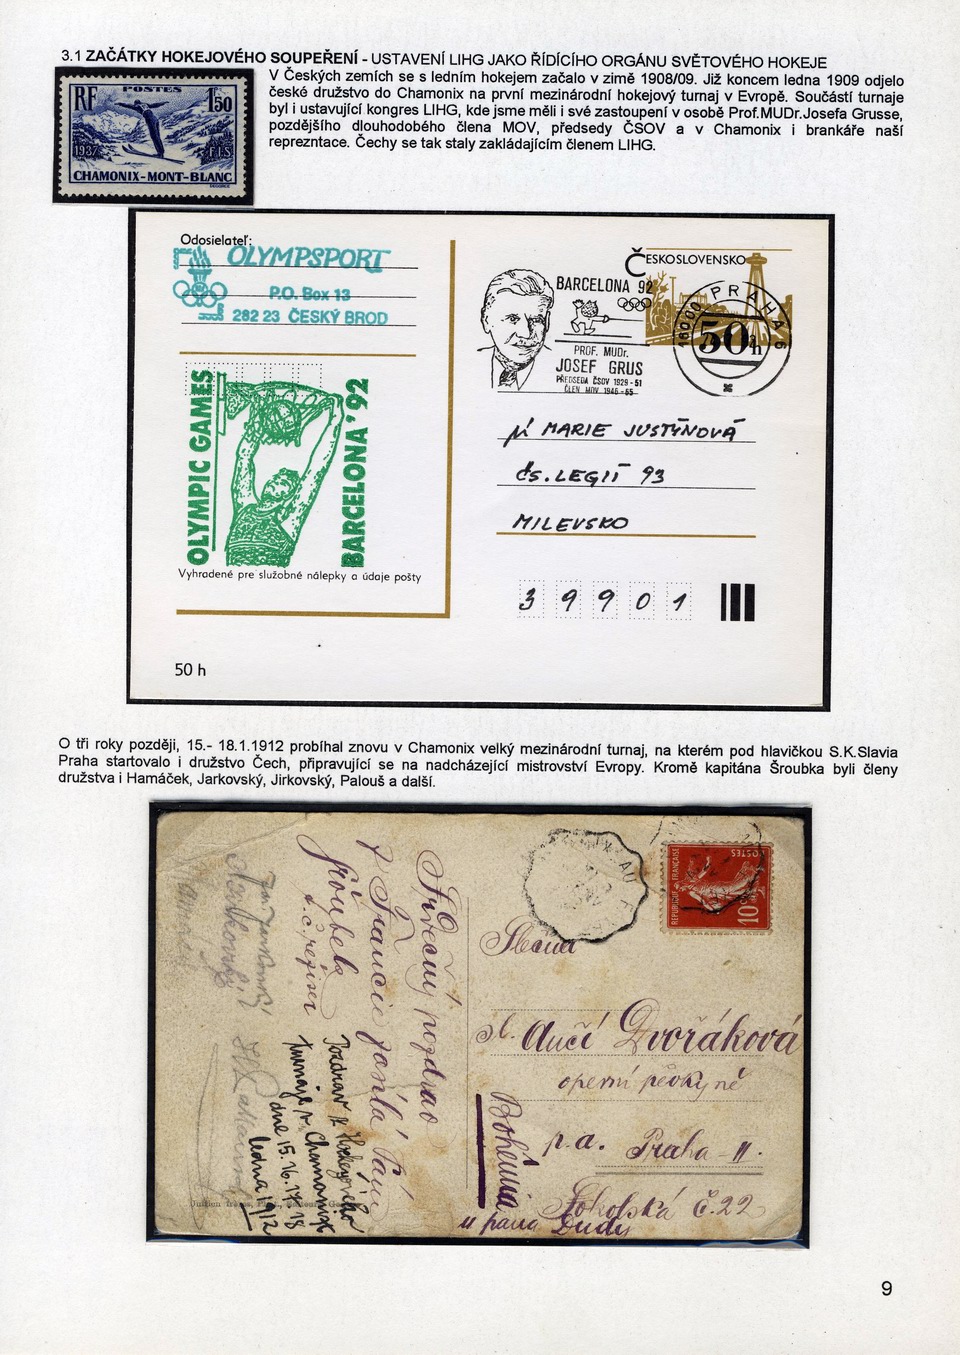 3.1 ZAČÁTKY HOKEJOVÉHO SOUPEŘENÍ - USTAVENÍ LIHG JAKO ŘÍDÍCÍHO ORGÁNU SVĚTOVÉHO HOKEJE
V Českých zemích se s ledním hokejem začalo v zimě 1908/09. Již koncem ledna 1909 odjelo
české družstvo do Chamonix na první mezinárodní hokejový turnaj v Evropě. Součástí turnaje
byl i ustavující kongres LIHG, kde jsme měli i své zastoupení v osobě Prof.MUDr.Josefa Grusse,
pozdějšího dlouhodobého člena MOV, předsedy ČSOV a v Chamonix i brankáře naší
reprezntace. Čechy se tak staly zakládajícím členem LIHG.
RF POSTES 1f50
1937 F.I.S.
CHAMONIX-MONT-BLANC
Odosielateľ:
OLYMPSPORT
P.O. Box 13
282 23 ČESKÝ BROD
OLYMPIC GAMES
BARCELONA '92
Vyhradené pre služobné nálepky a údaje pošty
50 h
ČESKOSLOVENSKO
BARCELONA 92
PROF. MUDr.
JOSEF GRUS
PŘEDSEDA ČSOV 1929-51
ČLEN MOV 1946-65
PRAHA 6
16000
50h
MARIE JUSTÝNOVÁ
ČS. LEGIÍ 93
MILEVSKO
39901
O tři roky později, 15.- 18.1.1912 probíhal znovu v Chamonix velký mezinárodní turnaj, na kterém pod hlavičkou S.K.Slavia
Praha startovalo i družstvo Čech, připravující se na nadcházející mistrovství Evropy. Kromě kapitána Šroubka byli členy
družstva i Hamáček, Jarkovský, Jirkovský, Palouš a další.
REPUBLIQUE FRANÇAISE
POSTES
10c
Slečna
sl. Aučí Dvořáková
operní pěvkyně
p.a. Praha - II.
Sokolská č.22
u pana Dudy
Bohemia
Srdečný pozdrav
z Francie
Pozdrav z Hockeyového
turnaje v Chamonixe
dne 15. 16. 17. 18
ledna 1912
9